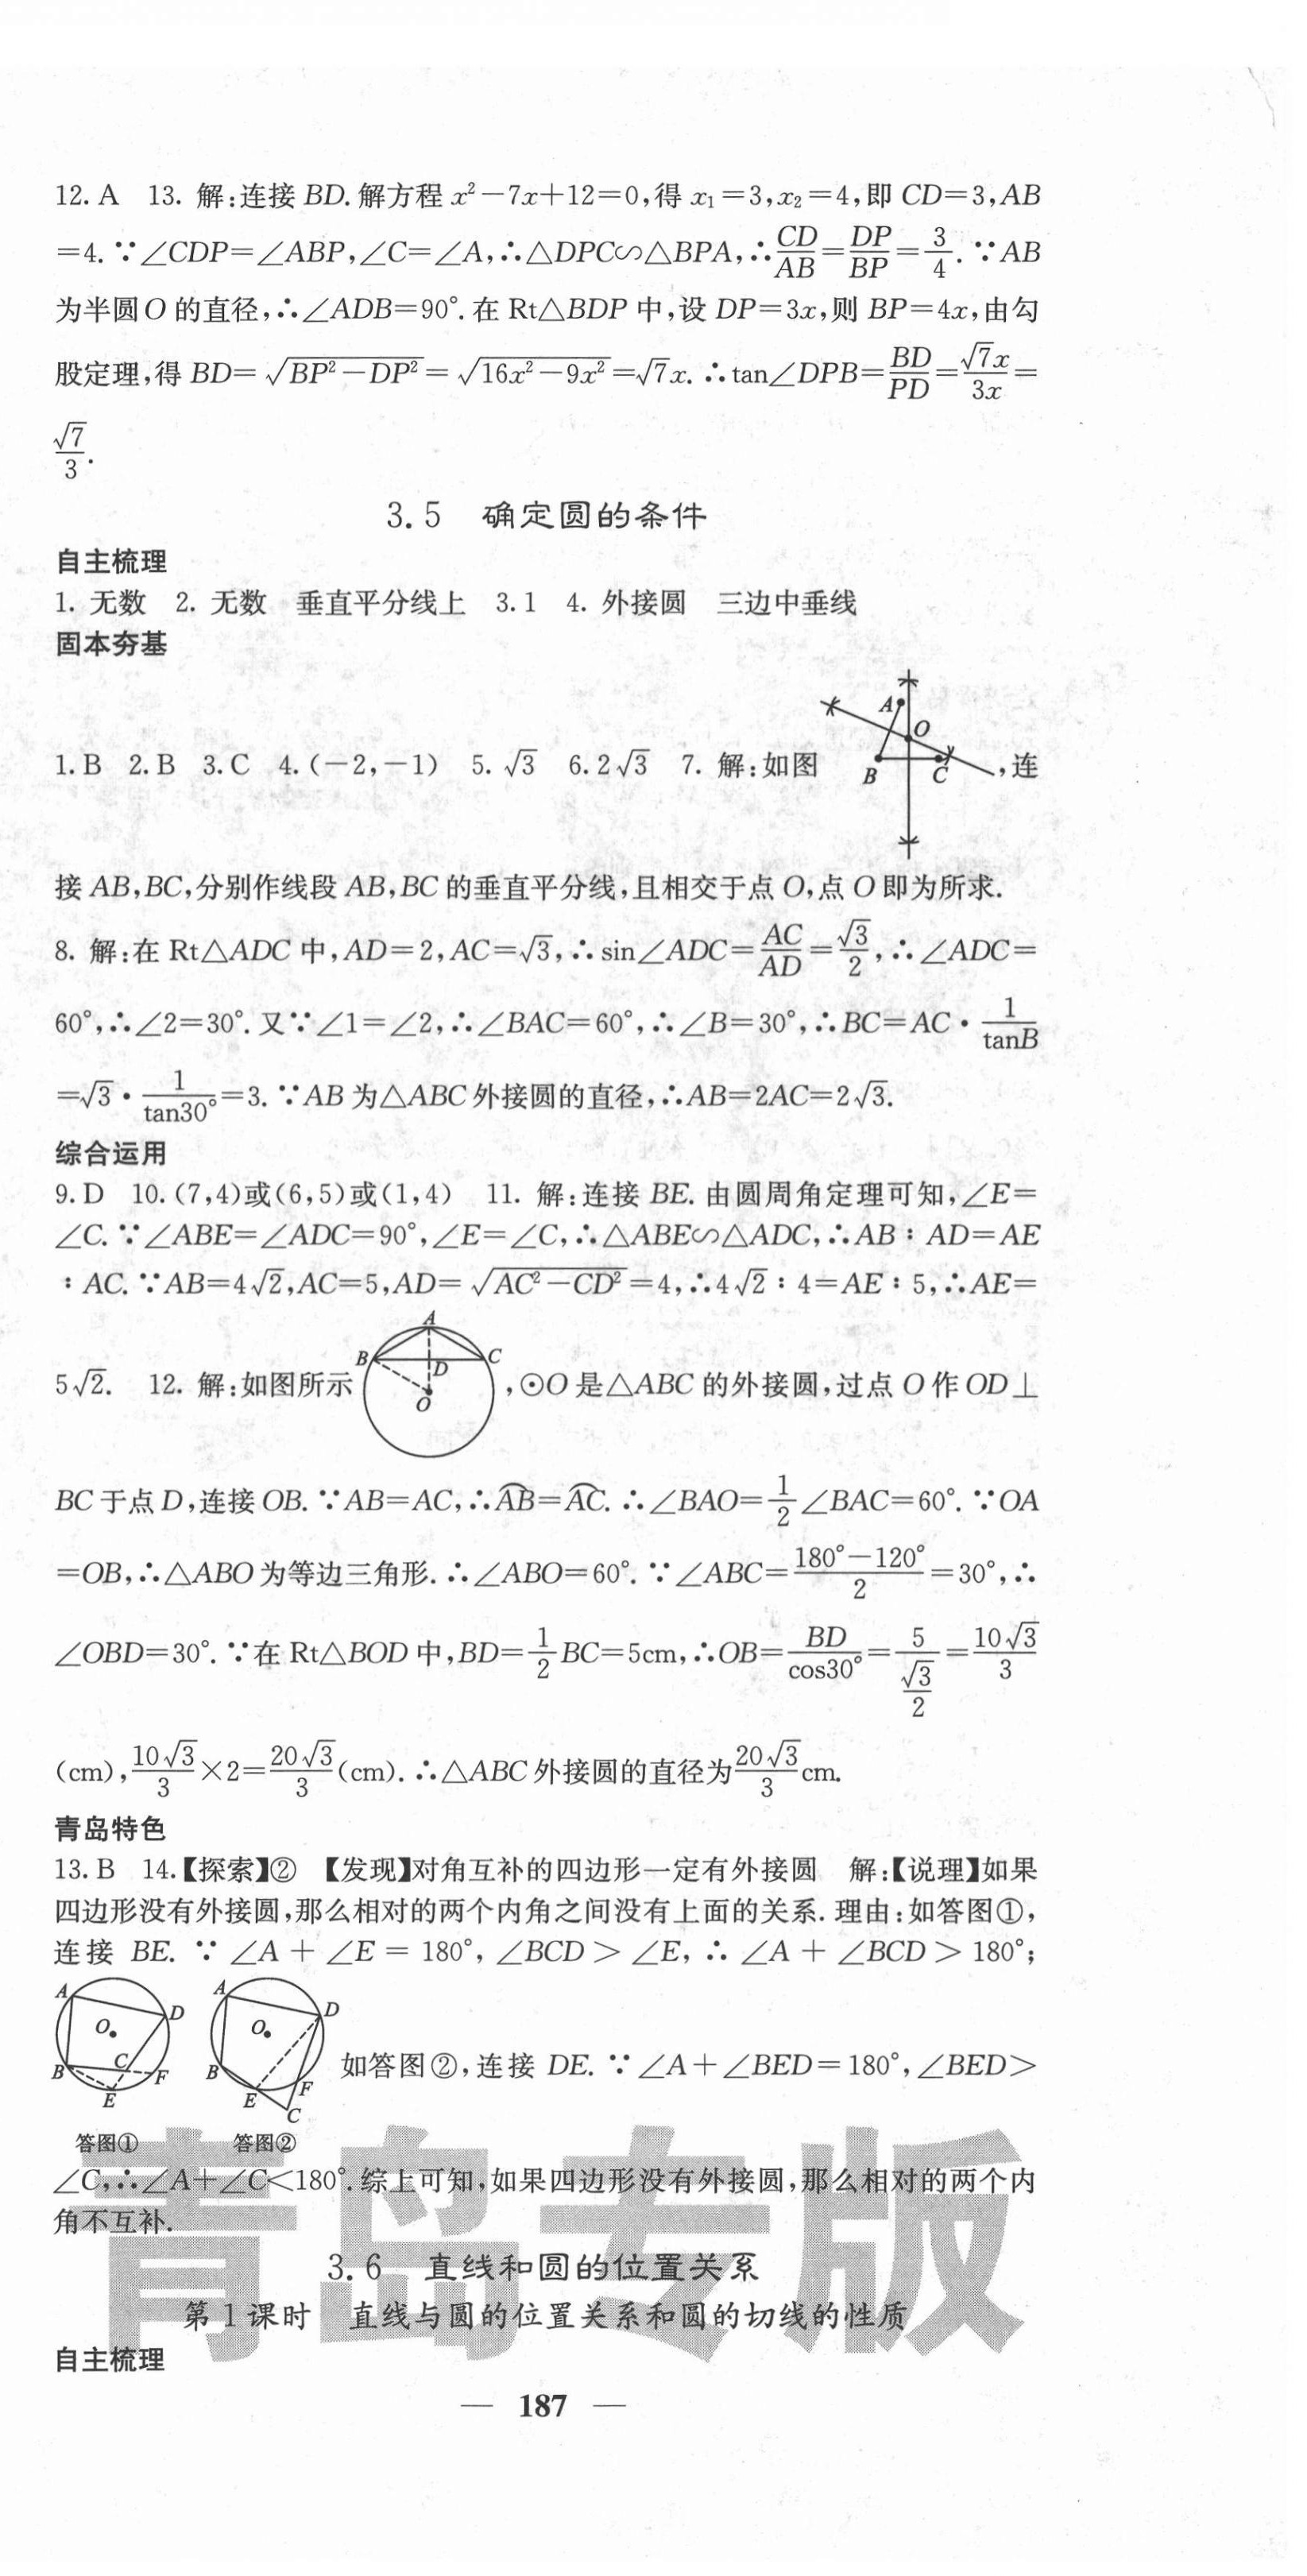 12. A 13. 解:连接 BD. 解方程 x²-7x+12=0,得 x₁=3,x₂=4,即 CD=3,AB
=4. ∵∠CDP=∠ABP,∠C=∠A,∴△DPC∽△BPA,∴CD/AB=DP/BP=3/4. ∵AB
为半圆 O 的直径,∴∠ADB=90°. 在 Rt△BDP 中,设 DP=3x,则 BP=4x,由勾
股定理,得 BD=√(BP²-DP²)=√(16x²-9x²)=√7x. ∴tan∠DPB=BD/PD=√7x/3x=
√7/3.
3.5 确定圆的条件
自主梳理
1. 无数 2. 无数 垂直平分线上 3.1 4. 外接圆 三边中垂线
固本夯基
A
O
B
C
1.B 2.B 3.C 4.(-2,-1) 5. √3 6.2√3 7. 解:如图 ,连
接 AB,BC,分别作线段 AB,BC 的垂直平分线,且相交于点 O,点 O 即为所求.
8. 解:在 Rt△ADC 中,AD=2,AC=√3,∴sin∠ADC=AC/AD=√3/2,∴∠ADC=
60°,∴∠2=30°. 又∵∠1=∠2,∴∠BAC=60°,∴∠B=30°,∴BC=AC·1/tanB
=√3·1/tan30°=3. ∵AB 为△ABC 外接圆的直径,∴AB=2AC=2√3.
综合运用
9.D 10.(7,4)或(6,5)或(1,4) 11. 解:连接 BE. 由圆周角定理可知,∠E=
∠C. ∵∠ABE=∠ADC=90°,∠E=∠C,∴△ABE∽△ADC,∴AB∶AD=AE
∶AC. ∵AB=4√2,AC=5,AD=√(AC²-CD²)=4,∴4√2∶4=AE∶5,∴AE=
A
B
C
D
O
5√2. 12. 解:如图所示 ,⊙O 是△ABC 的外接圆,过点 O 作 OD⊥
BC 于点 D,连接 OB. ∵AB=AC,∴A͡B=A͡C. ∴∠BAO=1/2∠BAC=60°. ∵OA
=OB,∴△ABO 为等边三角形. ∴∠ABO=60°. ∵∠ABC=(180°-120°)/2=30°,∴
∠OBD=30°. ∵在 Rt△BOD 中,BD=1/2BC=5cm,∴OB=BD/cos30°=5/(√3/2)=10√3/3
(cm),10√3/3×2=20√3/3(cm). ∴△ABC 外接圆的直径为20√3/3cm.
青岛特色
13.B 14.【探索】② 【发现】对角互补的四边形一定有外接圆 解:【说理】如果
四边形没有外接圆,那么相对的两个内角之间没有上面的关系. 理由:如答图①,
连接 BE. ∵∠A+∠E=180°,∠BCD>∠E,∴∠A+∠BCD>180°;
A
D
O
B
C
F
E
A
D
O
B
E
F
C
如答图②,连接 DE. ∵∠A+∠BED=180°,∠BED>
答图① 答图②
∠C,∴∠A+∠C<180°. 综上可知,如果四边形没有外接圆,那么相对的两个内
角不互补.
青岛专版
3.6 直线和圆的位置关系
第 1 课时 直线与圆的位置关系和圆的切线的性质
自主梳理
— 187 —